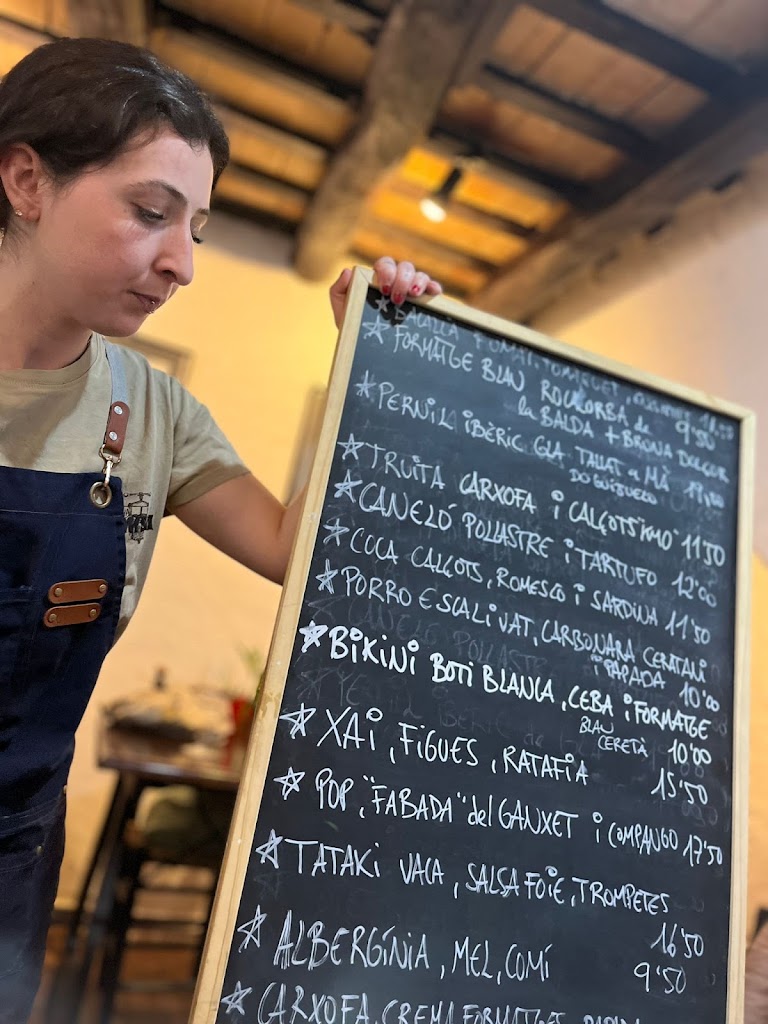 ☆ BACALLÀ
☆ FORMATGE BLAU ROCALORBA de
la BALDA + BRUNA DOLÇOR 9'50
☆ PERNIL IBÈRIC GLA TALLAT a MÀ
DO GUIJUELO
☆ TRUITA CARXOFA i CALÇOTS 11'50
☆ CANELÓ POLLASTRE i TARTUFO 12'00
☆ COCA CALÇOTS, ROMESCO i SARDINA 11'50
☆ PORRO ESCALIVAT, CARBONARA CERATANI
i PAPADA 10'00
☆ BIKINI BOTI BLANCA, CEBA i FORMATGE
BLAU
CERETÀ 10'00
☆ XAI, FIGUES, RATAFIA 15'50
☆ POP, "FABADA" del GANXET i COMPANGO 17'50
☆ TATAKI VACA, SALSA FOIE, TROMPETES
16'50
☆ ALBERGÍNIA, MEL, COMÍ 9'50
☆ CARXOFA, CREMA FORMATGES, PAPADA